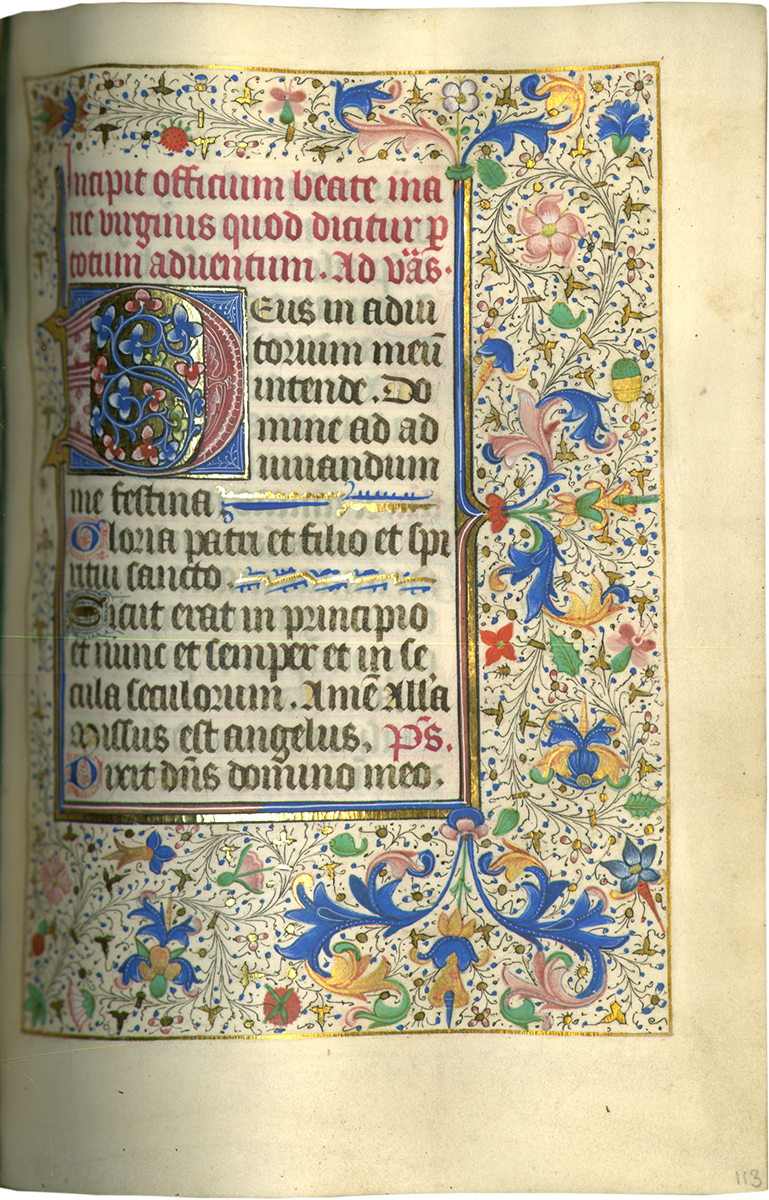 Incipit officium beate ma
rie virginis quod dicitur p̲
totum aduentum. Ad vās.
Deus in adiu
torium meū
intende. Do
mine ad ad
iuuandum
me festina
Gloria patri et filio et spi
ritui sancto
Sicut erat in principio
et nunc et semper et in se
cula seculorum. Amē All'a
Missus est angelus. p̄s.
Dixit dn̄s domino meo.
113